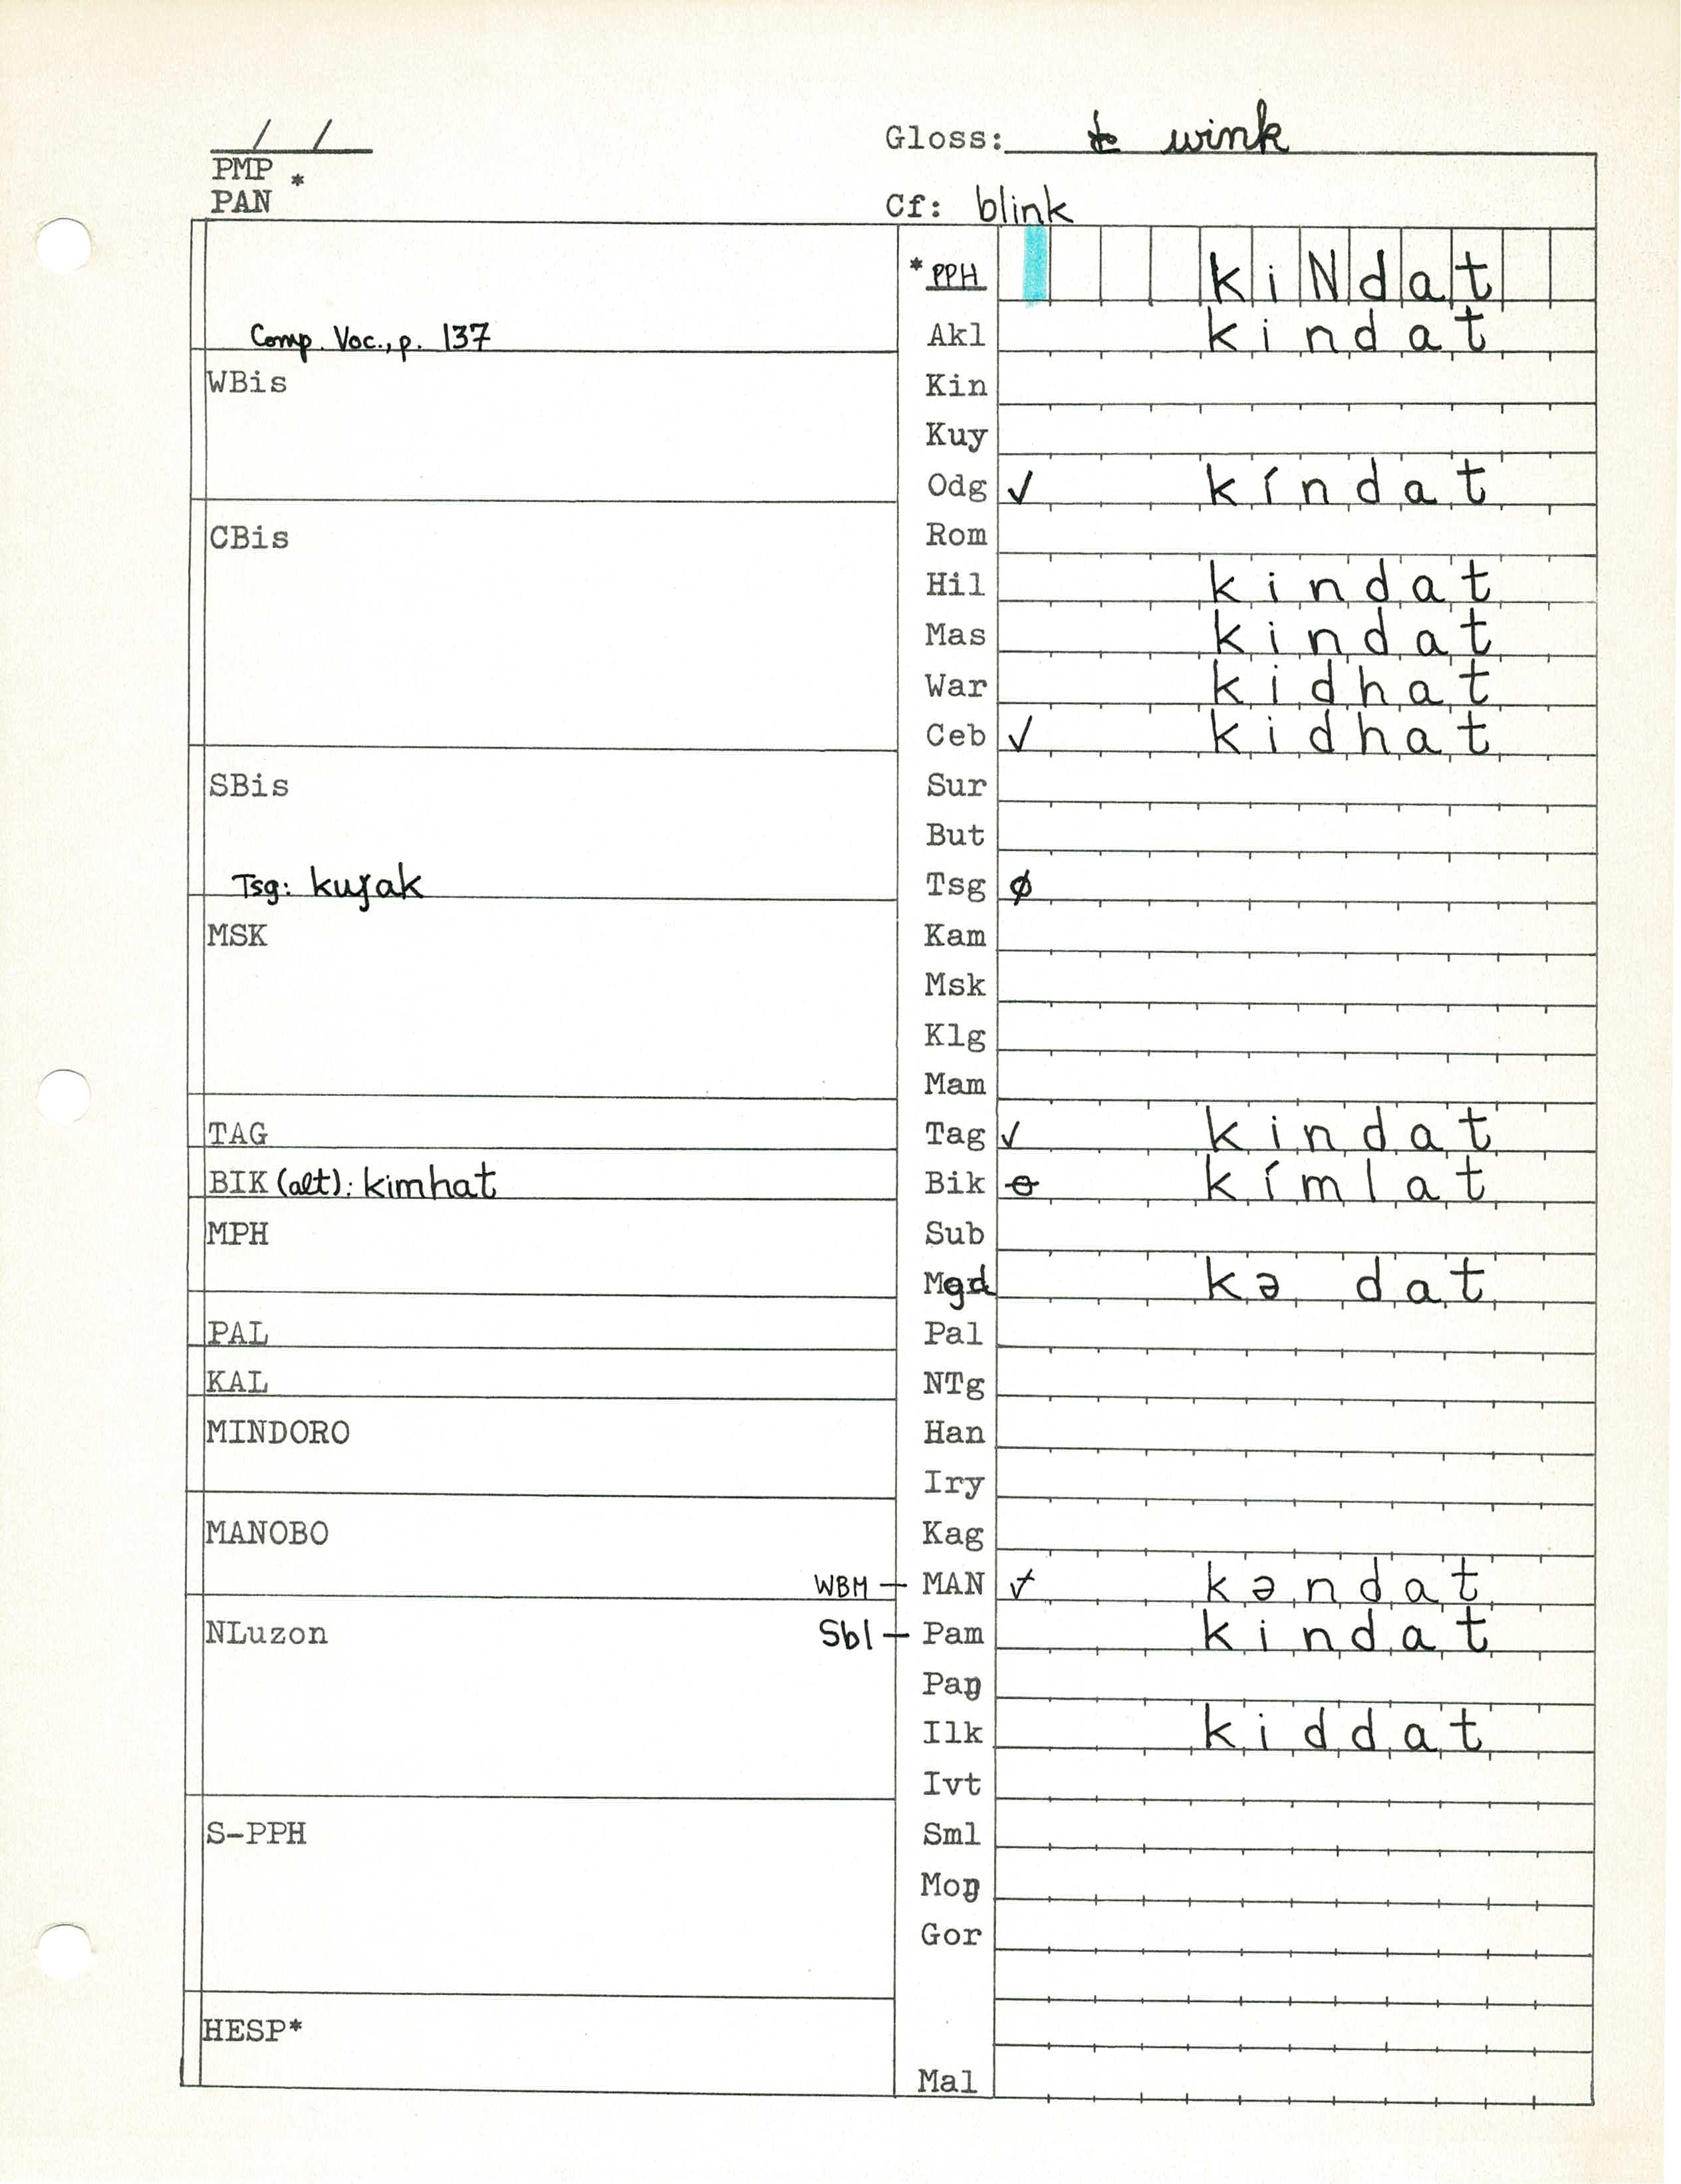 / /
Gloss: to wink
PMP *
PAN
Cf: blink
* PPH kiNdat
Comp. Voc., p. 137
Akl kindat
WBis
Kin
Kuy
Odg ✓ kíndat
CBis
Rom
Hil kindat
Mas kindat
War kidhat
Ceb ✓ kidhat
SBis
Sur
But
Tsg: kuɤak
Tsg ø
MSK
Kam
Msk
Klg
Mam
TAG
Tag ✓ kindat
BIK (alt): kimhat
Bik ɵ kímlat
MPH
Sub
Mgd kə dat
PAL
Pal
KAL
NTg
MINDORO
Han
Iry
MANOBO
Kag
WBM — MAN ✓ kəndat
NLuzon
Sbl — Pam kindat
Paŋ
Ilk kiddat
Ivt
S-PPH
Sml
Moŋ
Gor
HESP*
Mal